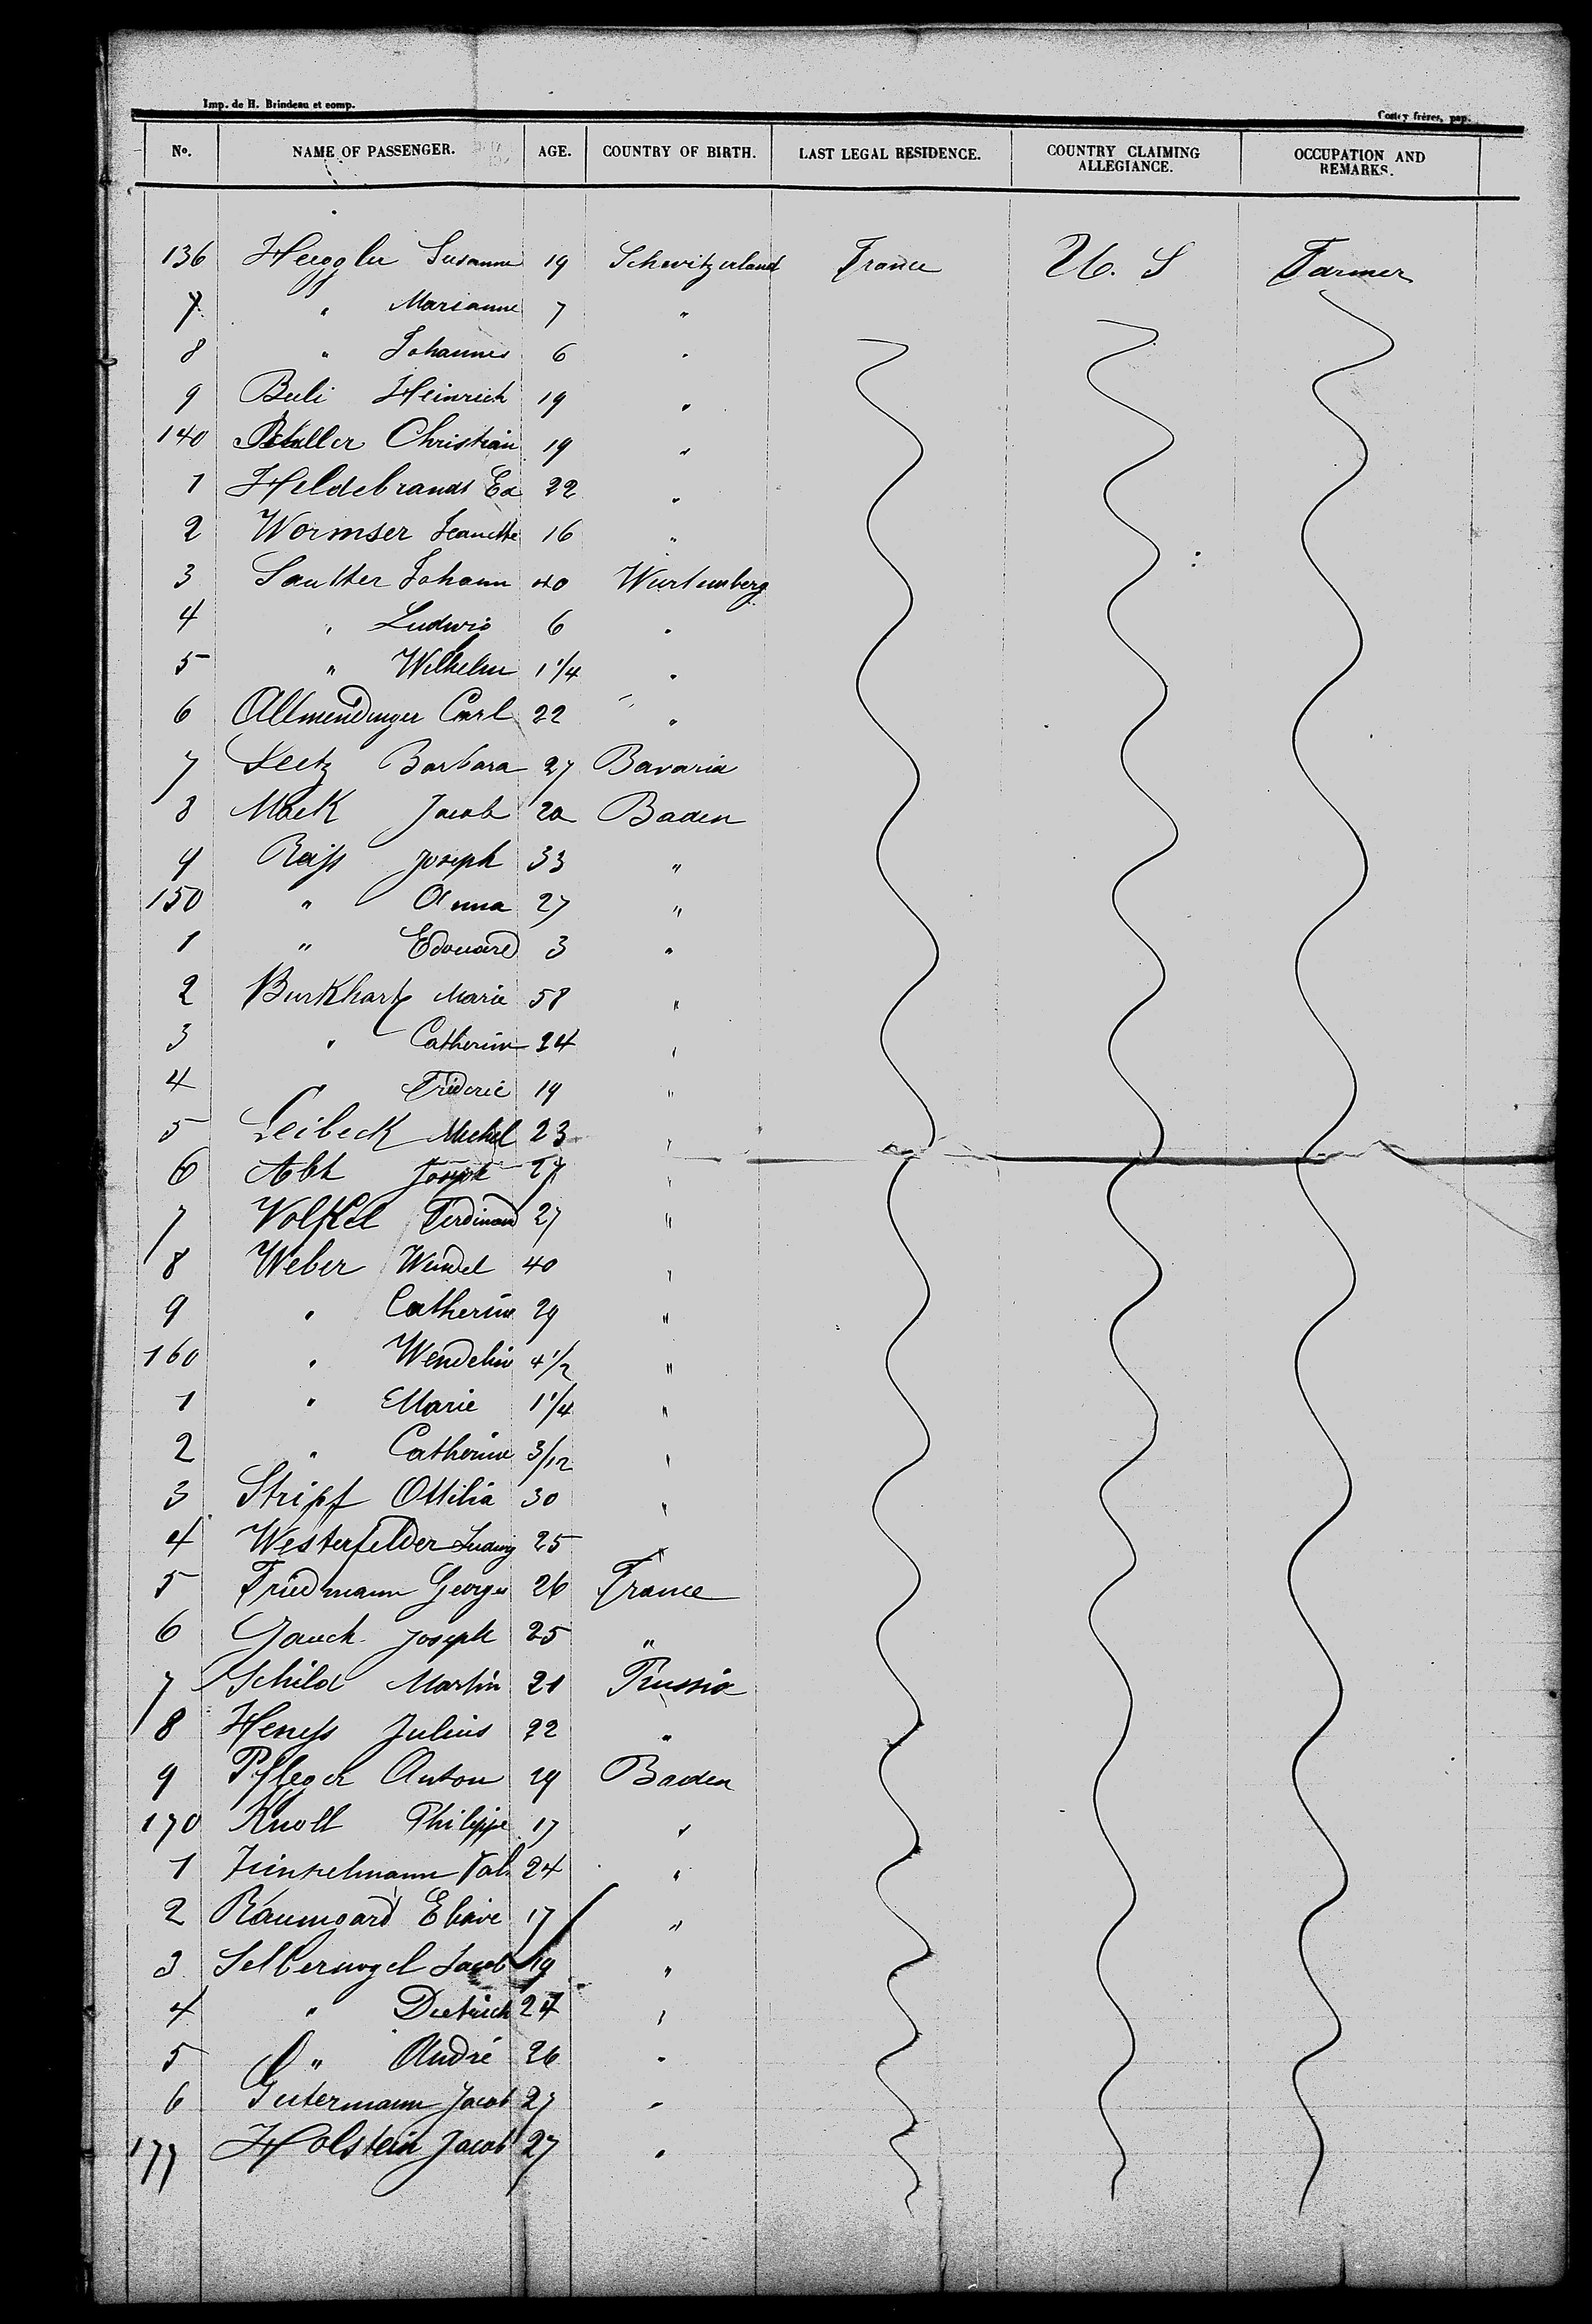 Imp. de H. Brindeau et comp.
Costey frères, pap.
No. NAME OF PASSENGER. AGE. COUNTRY OF BIRTH. LAST LEGAL RESIDENCE. COUNTRY CLAIMING ALLEGIANCE. OCCUPATION AND REMARKS.
136 Heeggler Susanne 19 Schwitzerland France U. S Farmer
7 " Marianne 7 "
8 " Johannes 6 "
9 Buli Heinrich 19 "
140 Christian 19 "
1 Heldebrandt Ed 22 "
2 Wormser Jeanette 16 "
3 Sautter Johann 40 Wurtemberg
4 " Ludwig 6 "
5 " Wilhelm 1 1/4 "
6 Allmendinger Carl 22 "
7 Seetz Barbara 27 Bavaria
8 Mack Jacob 20 Baden
9 Raiss Joseph 33 "
150 " Anna 27 "
1 " Edouard 3 "
2 Burkhart Marie 58 "
3 " Catherine 24 "
4 " Frideric 19 "
5 Leibeck Michel 23 "
6 Abt Joseph 27 "
7 Volkel Ferdinand 27 "
8 Weber Wendel 40 "
9 " Catherine 29 "
160 " Wendelin 4 1/2 "
1 " Marie 1 1/4 "
2 " Catherine 3/12 "
3 Stripf Ottilia 30 "
4 Westerfelder Ludwig 25 "
5 Friedmann Georges 26 France
6 Jauch Joseph 25 "
7 Schild Martin 21 Prussia
8 Heness Julius 22 "
9 Pfleger Anton 29 Baden
170 Knoll Philippe 17 "
1 Zuntzelmann Val. 24 "
2 Baumgard 17 "
3 Selbernogel Jacob 19 "
4 " Dietrich 24 "
5 " André 26 "
6 Gutermann Jacob 27 "
177 Holstein Jacob 27 "